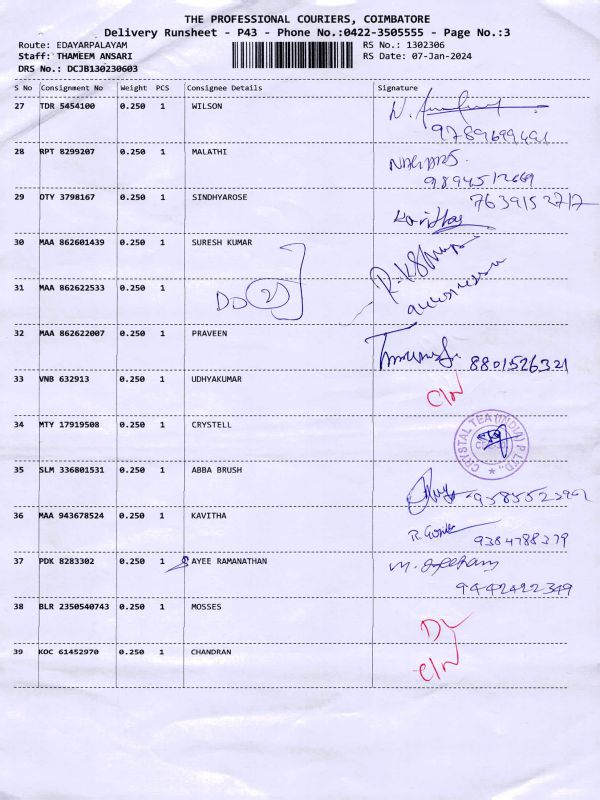 THE PROFESSIONAL COURIERS, COIMBATORE
Delivery Runsheet - P43 - Phone No.:0422-3505555 - Page No.:3
Route: EDAYARPALAYAM RS No.: 1302306
Staff: THAMEEM ANSARI RS Date: 07-Jan-2024
DRS No.: DCJB130230603
S No Consignment No Weight PCS Consignee Details Signature
27 TDR 5454100 0.250 1 WILSON
28 RPT 8299207 0.250 1 MALATHI
29 OTY 3798167 0.250 1 SINDHYAROSE
7639152717
30 MAA 862601439 0.250 1 SURESH KUMAR
31 MAA 862622533 0.250 1 DO 2
32 MAA 862622007 0.250 1 PRAVEEN
8801526321
33 VNB 632913 0.250 1 UDHYAKUMAR
34 MTY 17919508 0.250 1 CRYSTELL
CRYSTAL TEA (INDIA) P LTD.
35 SLM 336801531 0.250 1 ABBA BRUSH
36 MAA 943678524 0.250 1 KAVITHA
9384788379
37 PDK 8283302 0.250 1 AYEE RAMANATHAN
9442422349
38 BLR 2350540743 0.250 1 MOSSES
DL
39 KOC 61452970 0.250 1 CHANDRAN